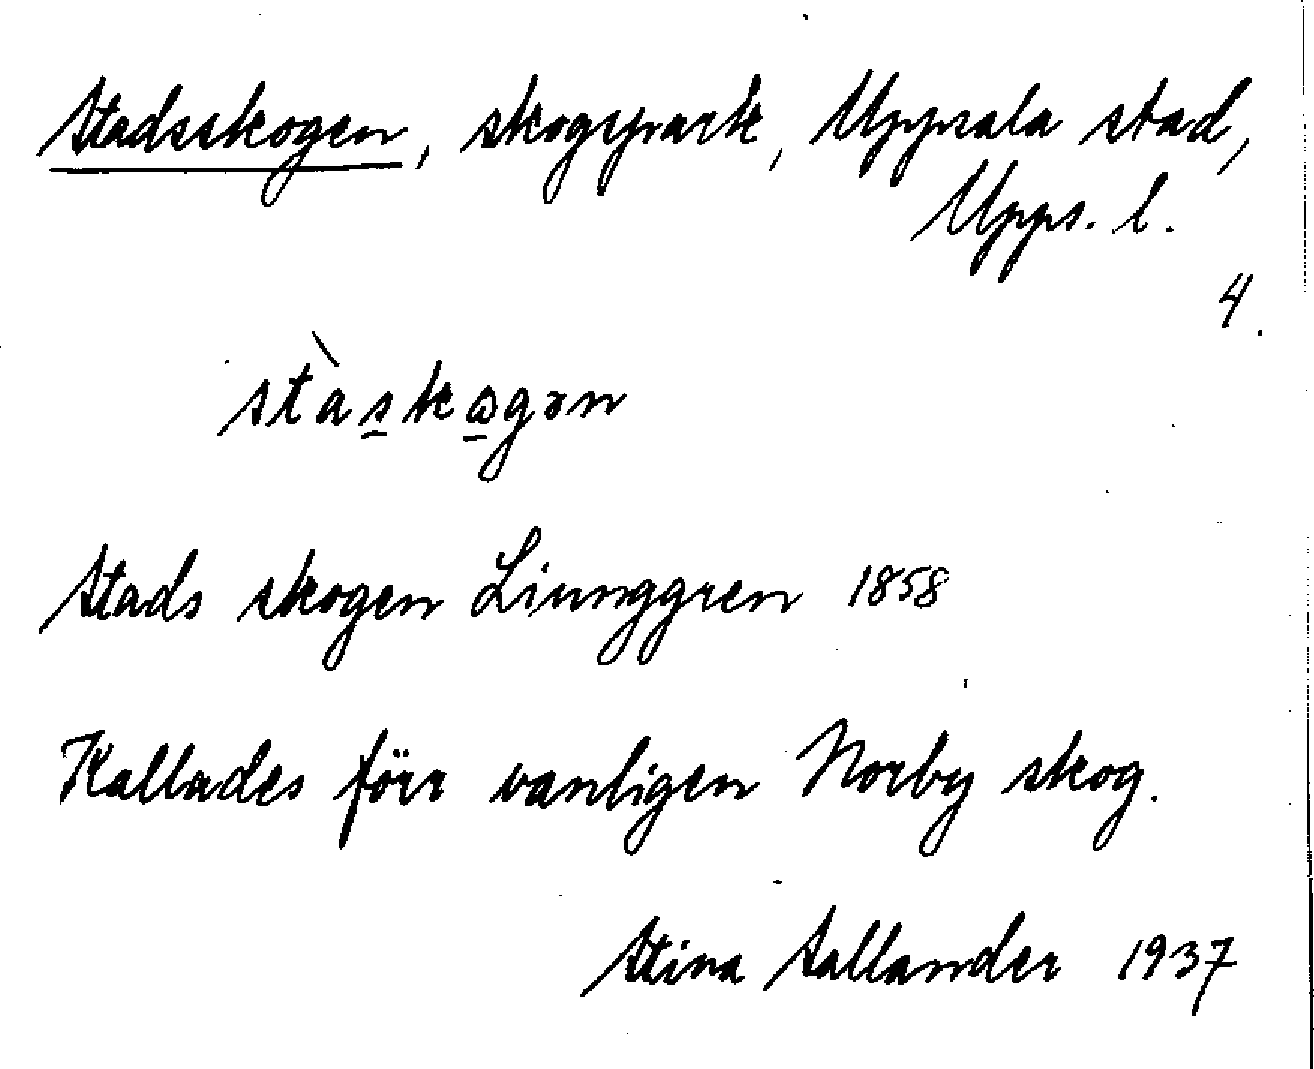 Stadsskogen, skogspark, Uppsala stad,
Upps. l.
4.
stàskωgən
Stads skogen Liunggren 1858
Kallades förr vanligen Norby skog.
Stina Sallander 1937